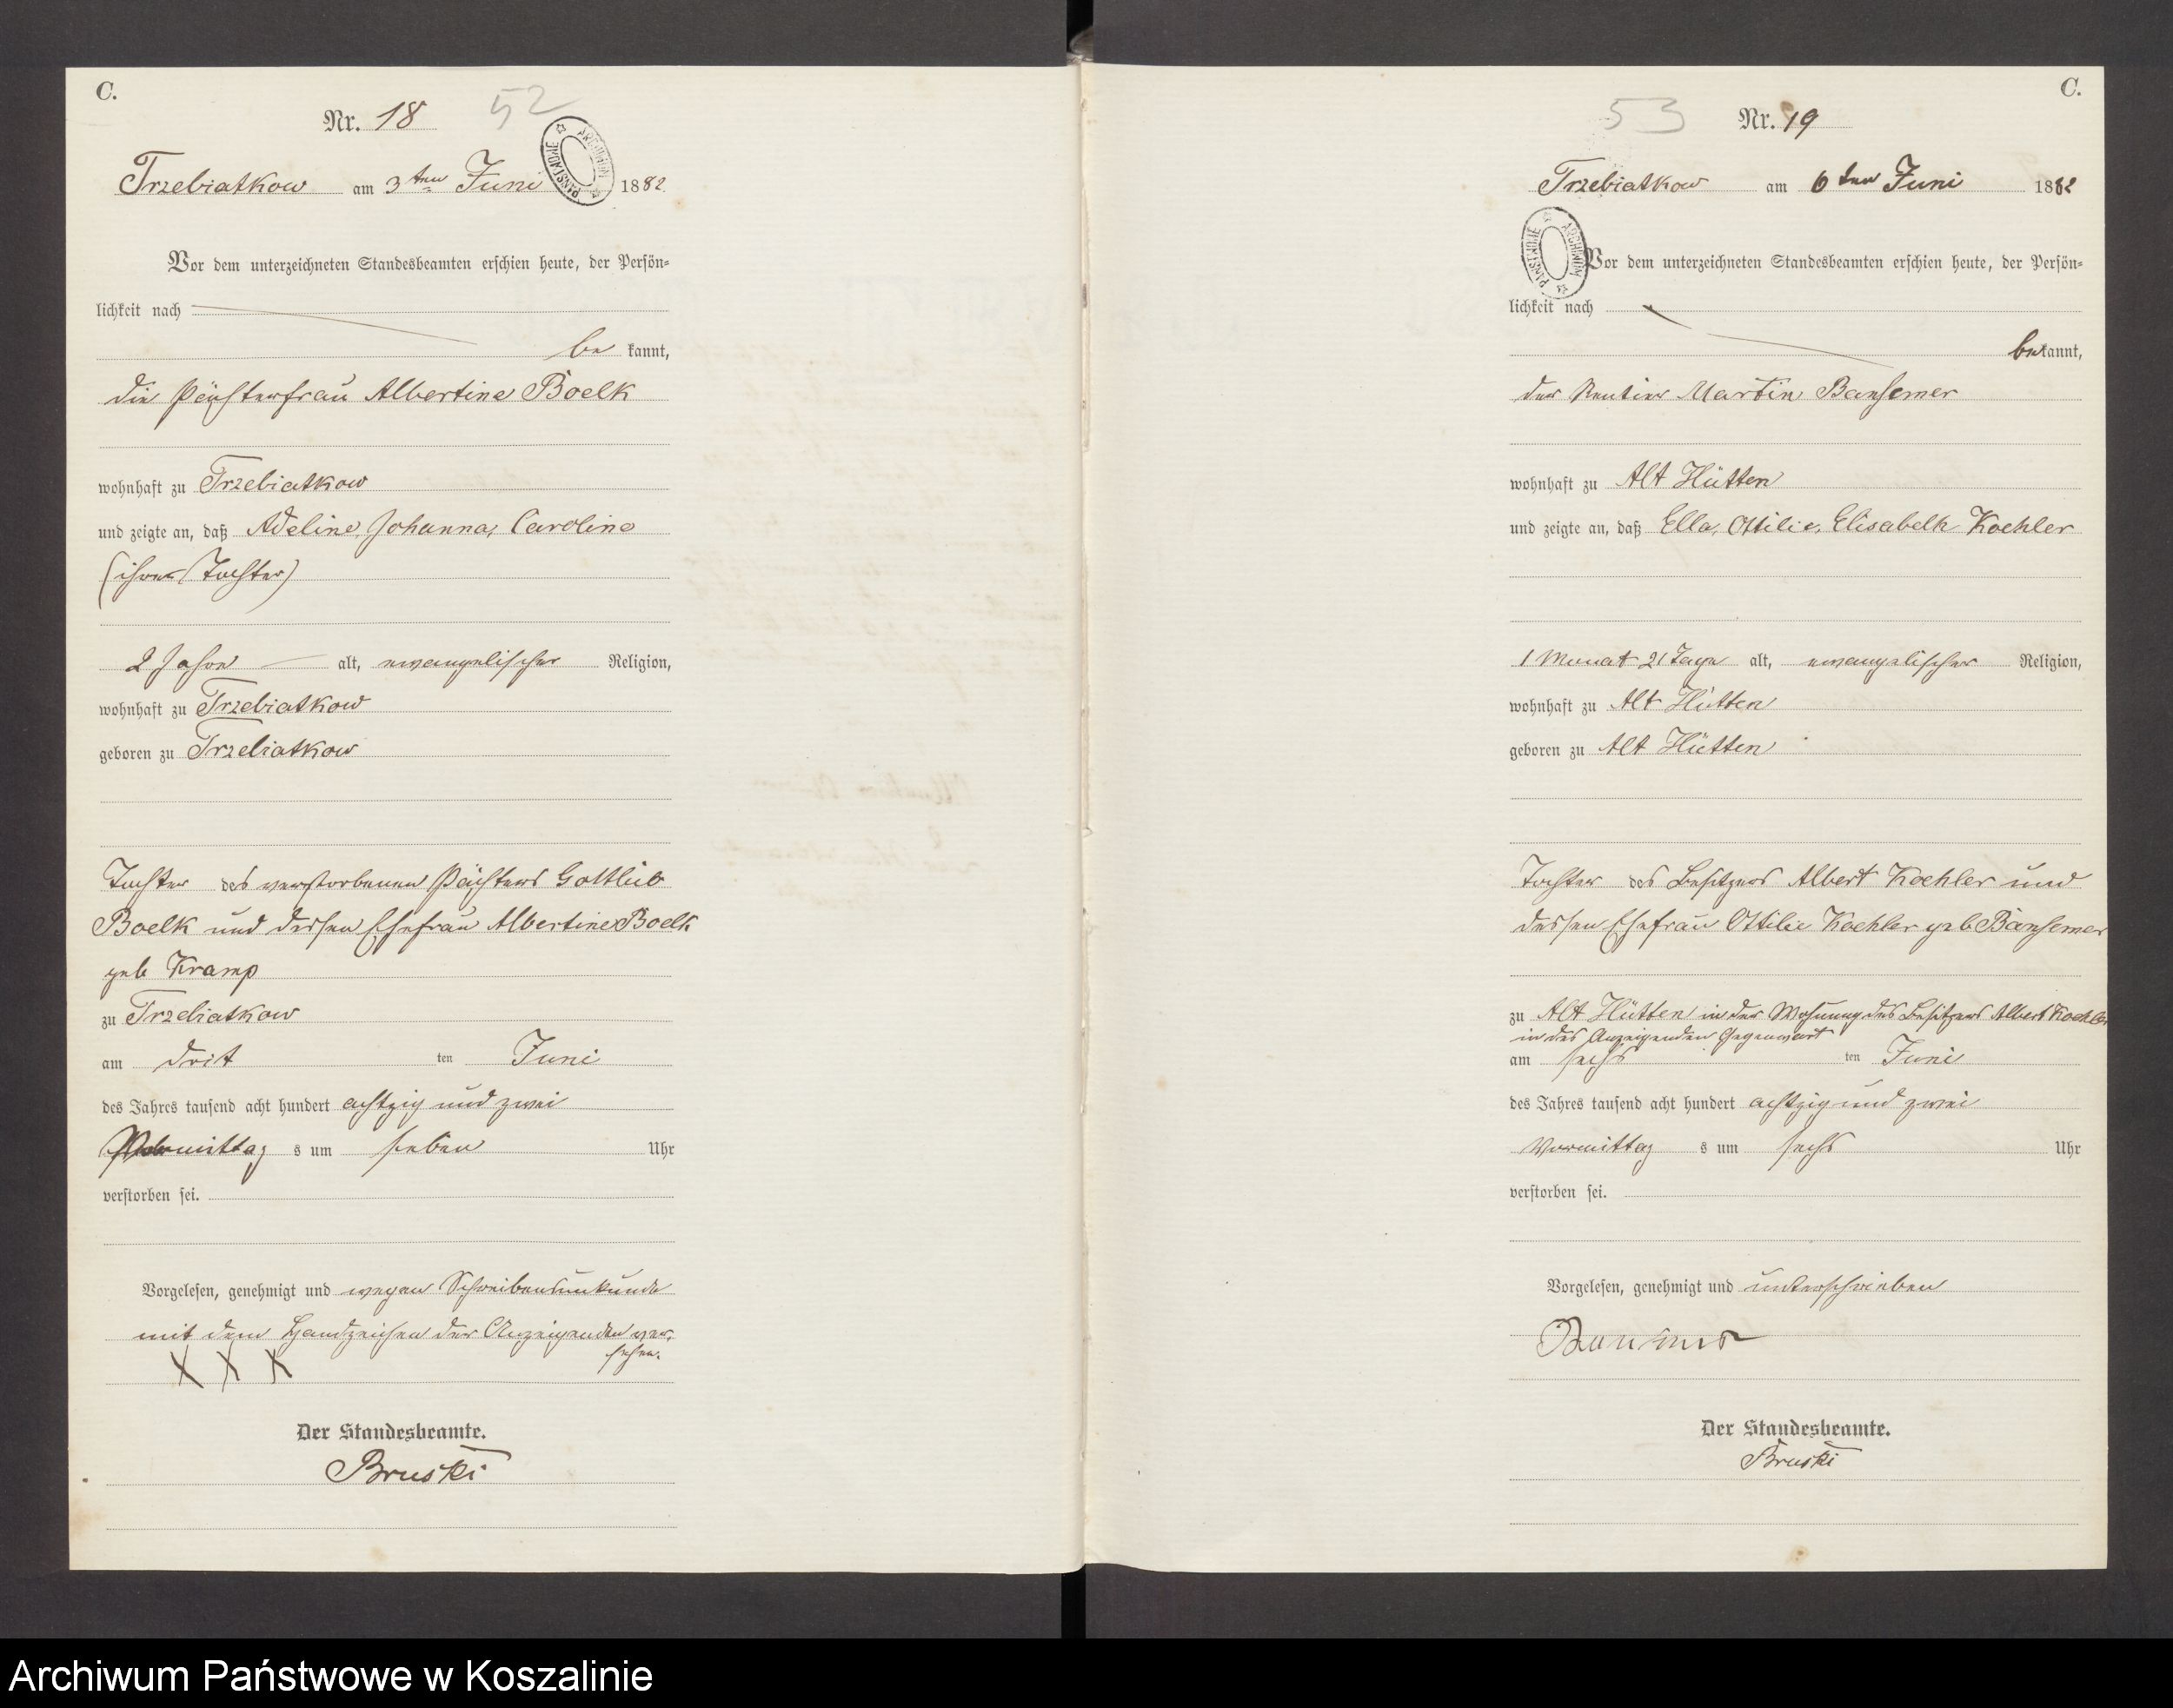 C.
Nr. 18
52
Trzebiatkow am 3ten Juni 1882
ARCHIWUM PAŃSTWOWE
Vor dem unterzeichneten Standesbeamten erschien heute, der Persön=
lichkeit nach
be kannt,
die Pächterfrau Albertine Boelk
wohnhaft zu Trzebiatkow
und zeigte an, daß Adeline, Johanna, Caroline
(ihre Tochter)
2 Jahre alt, evangelischer Religion,
wohnhaft zu Trzebiatkow
geboren zu Trzebiatkow
Tochter des verstorbenen Pächters Gottlieb
Boelk und dessen Ehefrau Albertine Boelk
geb Kramp
zu Trzebiatkow
am drit ten Juni
des Jahres tausend acht hundert achtzig und zwei
mittag s um sieben Uhr
verstorben sei.
Vorgelesen, genehmigt und wegen Schreibensunkunde
mit dem Handzeichen der Anzeigenden ver-
sehen.
X X X
Der Standesbeamte.
Bruski
C.
53
Nr. 19
Trzebiatkow am 6ten Juni 1882
ARCHIWUM PAŃSTWOWE
Vor dem unterzeichneten Standesbeamten erschien heute, der Persön=
lichkeit nach
bekannt,
der Rentier Martin Bansemer
wohnhaft zu Alt Hütten
und zeigte an, daß Ella, Ottilie, Elisabeth Koehler
1 Monat 21 Tage alt, evangelischer Religion,
wohnhaft zu Alt Hütten
geboren zu Alt Hütten
Tochter des Besitzers Albert Koehler und
dessen Ehefrau Ottilie Koehler geb Bansemer
zu Alt Hütten in der Wohnung des Besitzers Albert Koehler
in des Anzeigenden Gegenwart
am sechs ten Juni
des Jahres tausend acht hundert achtzig und zwei
Vormittag s um sechs Uhr
verstorben sei.
Vorgelesen, genehmigt und unterschrieben
Bansemer
Der Standesbeamte.
Bruski
Archiwum Państwowe w Koszalinie